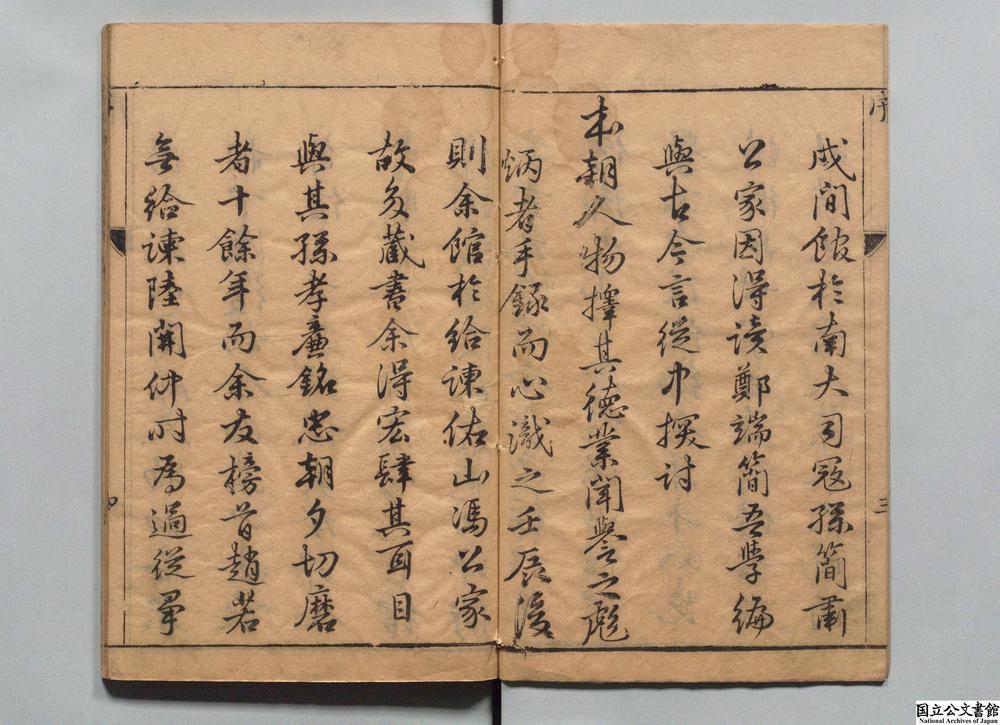 序
戌間館於南大司寇孫簡肅
公家因得讀鄭端簡吾學編
與古今言從中探討
本朝人物擇其德業聞譽之彪
炳者手錄而心識之壬辰後
三
則余館於給諫佑山馮公家
故多藏書余得宏肆其耳目
與其孫孝廉銘忠朝夕切磨
者十餘年而余友榜首趙若
無給諫陸開仲時為過從畢
国立公文書館
National Archives of Japan